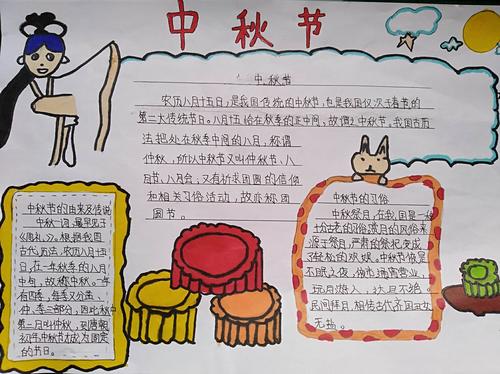 中秋节
中秋节
农历八月十五日，是我国传统的中秋节，也是我国仅次于春节的
第二大传统节日。八月十五恰在秋季的正中间，故谓之中秋节，我国古历
法把处在秋季中间的八月，称谓
仲秋，所以中秋节又叫仲秋节、八
月节、八月会；又有祈求团圆的信仰
和相关习俗活动，故亦称团
圆节。
中秋节的由来及传说
中秋一词，最早见于
《周礼》。根据我国
古代历法，农历八月十五
日，在一年秋季的八月
中旬，故称中秋。一年
有四季，每季又分孟、
仲、季三部分，因此秋中
第二月叫仲秋，到唐朝
初年，中秋节才成为固定
的节日。
中秋节的习俗
中秋祭月，在我国是一种
十分古老的习俗，赏月的风俗来
源于祭月，严肃的祭祀变成
了轻松的欢娱。中秋节夜是
不眠之夜，夜市通宵营业，
玩月游人，达旦不绝。
民间拜月，相传古代齐国丑女
无盐。